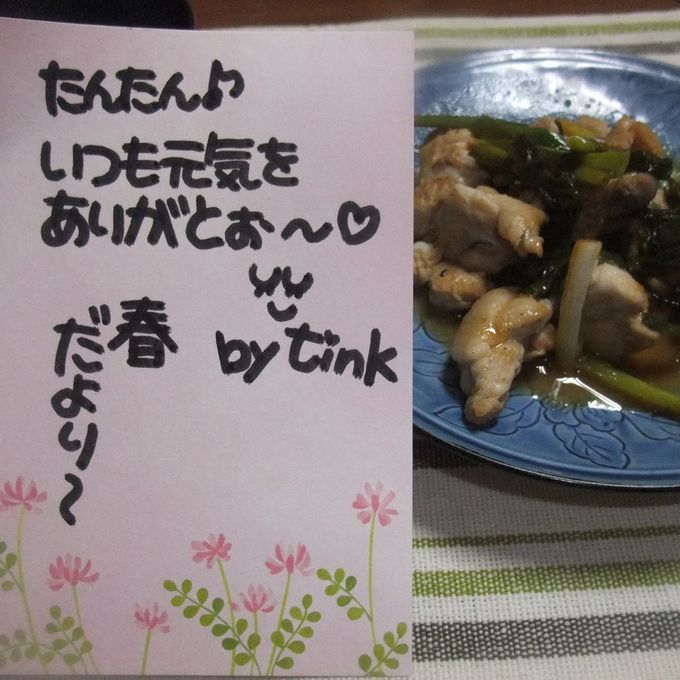 たんたん♪
いつも元気を
ありがとぉ～♡
by tink
春
だより～